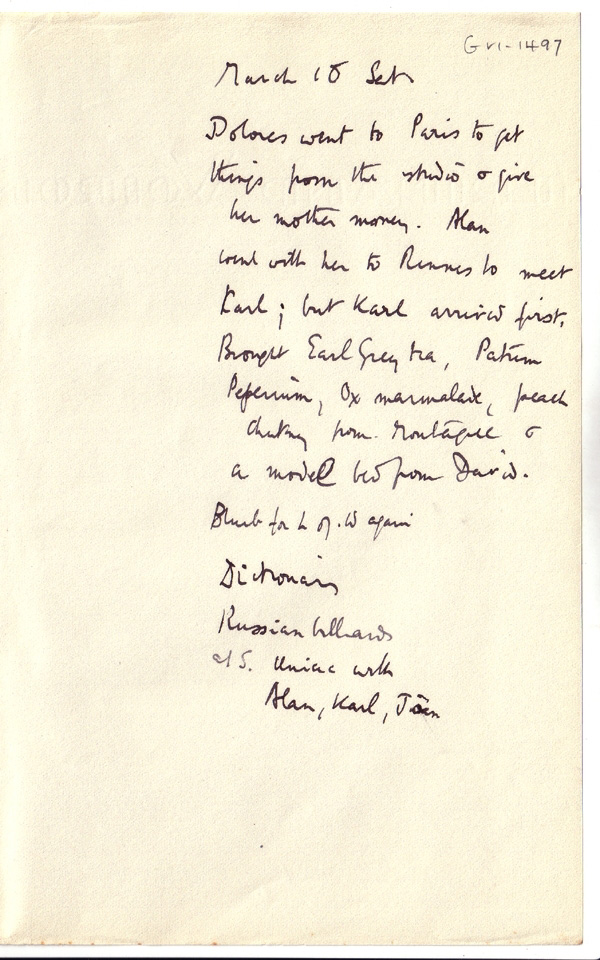 G VI-1497
March 18 Sat
Dolores went to Paris to get
things from the studio & give
her mother money. Alan
went with her to Rennes to meet
Karl; but Karl arrived first.
Brought Earl Grey tea, Patum
Peperium, Ox marmalade, peach
chutney from Montague &
a model bed from David.
Blurb for L of W again
Dictionary
Russian billiards
at S. Uniac with
Alan, Karl, Joan